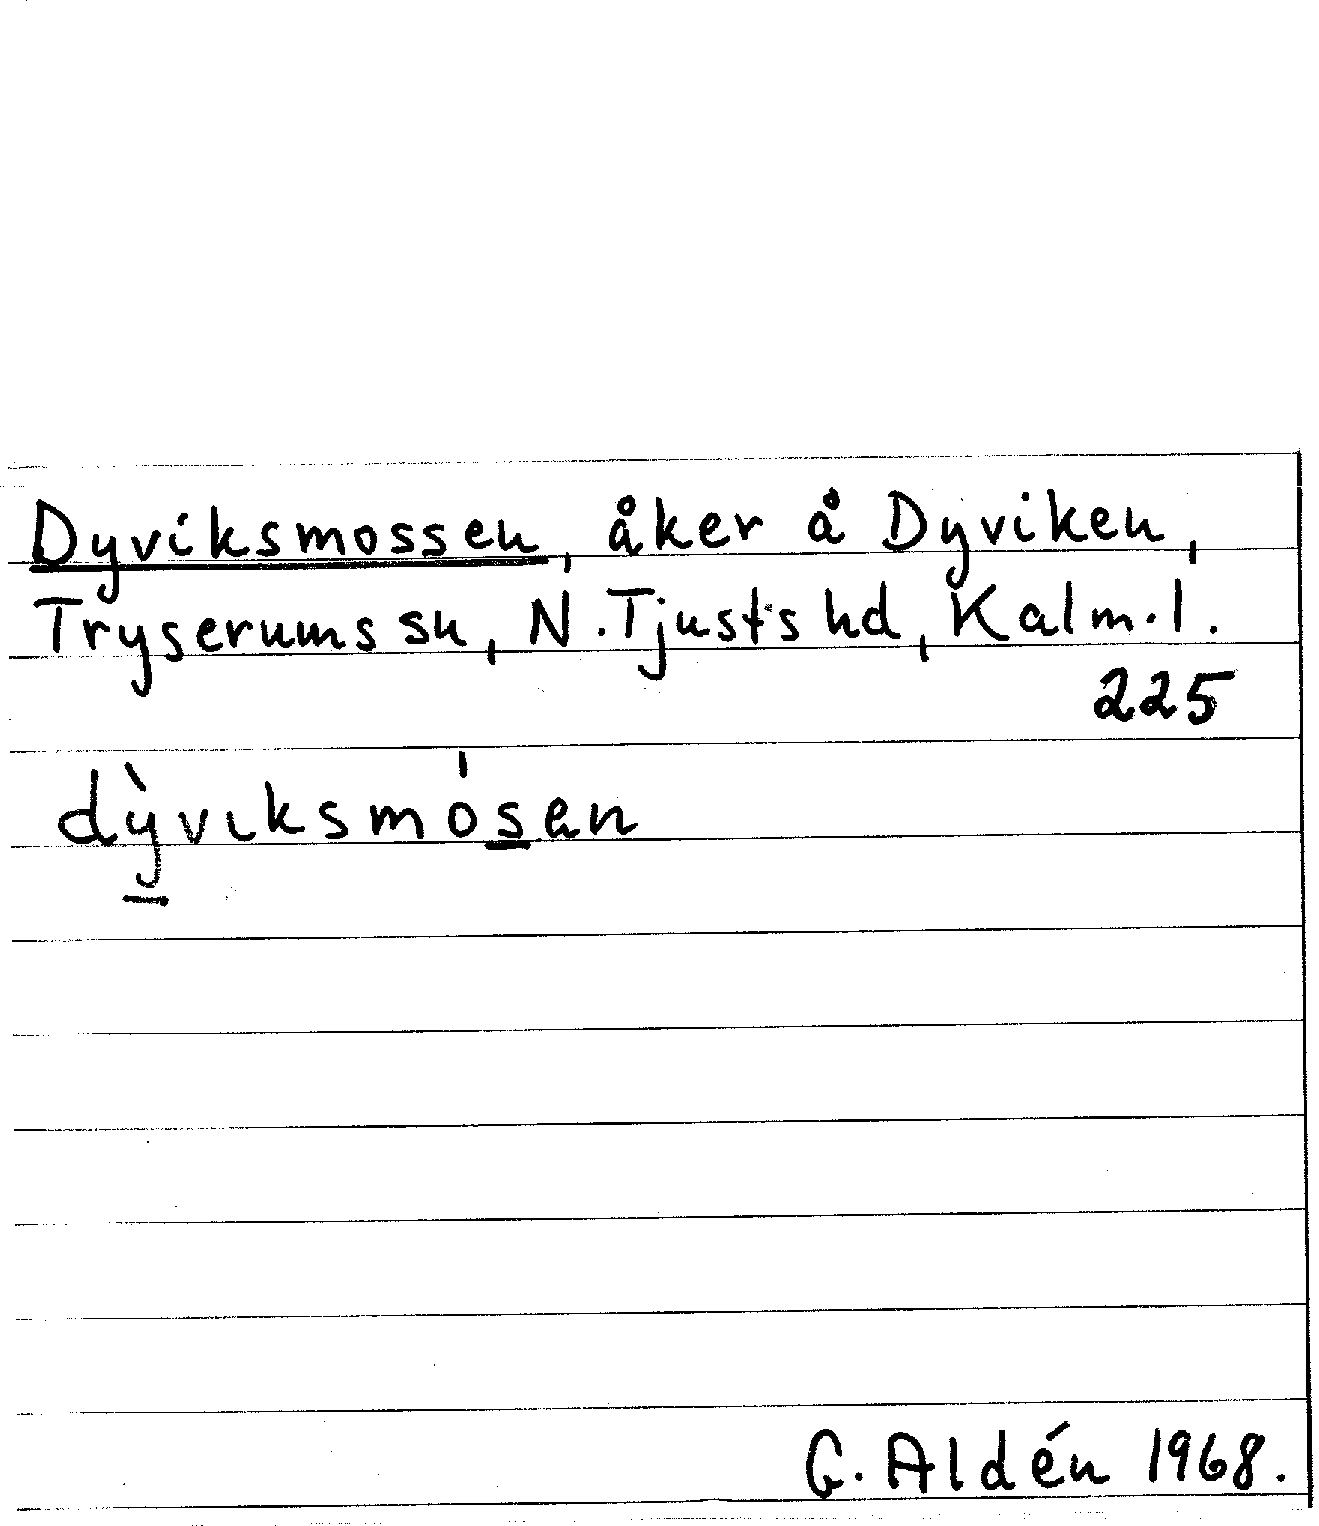 Dyviksmossen, åker å Dyviken,
Tryserums sn, N. Tjusts hd, Kalm. l.
225
dỳvıksmósen
G. Aldén 1968.